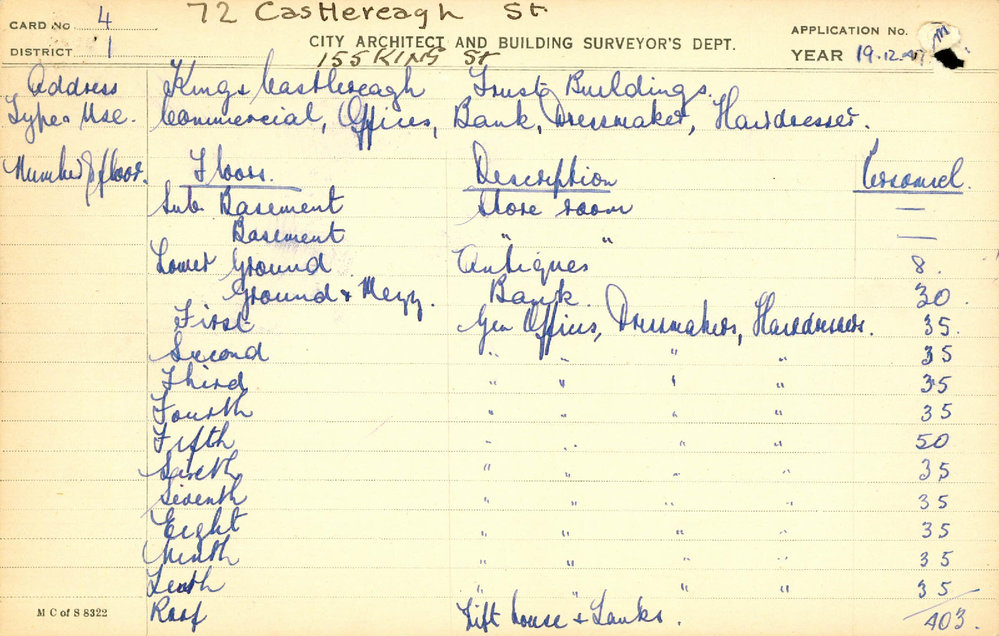 72 Castlereagh St
CARD No 4
APPLICATION No.
DISTRICT 1
CITY ARCHITECT AND BUILDING SURVEYOR'S DEPT.
YEAR 19.12.47
155 KING St
Address King & Castlereagh Trust Buildings.
Type & Use. Commercial, Offices, Bank, Dressmaker, Hairdresser.
Number of floor. Floors. Description Personnel.
Sub. Basement Store room —
Basement " " —
Lower Ground Antiques 8.
Ground & Mezz. Bank. 30.
First Gen Offices, Dressmakers, Hairdressers. 35.
Second " " " " 35
Third " " " " 35
Fourth " " " " 35
Fifth " " " " 50
Sixth " " " " 35
Seventh " " " " 35
Eight " " " " 35
Ninth " " " " 35
Tenth " " " " 35
Roof Lift house & Tanks. 403.
M C of S 8322